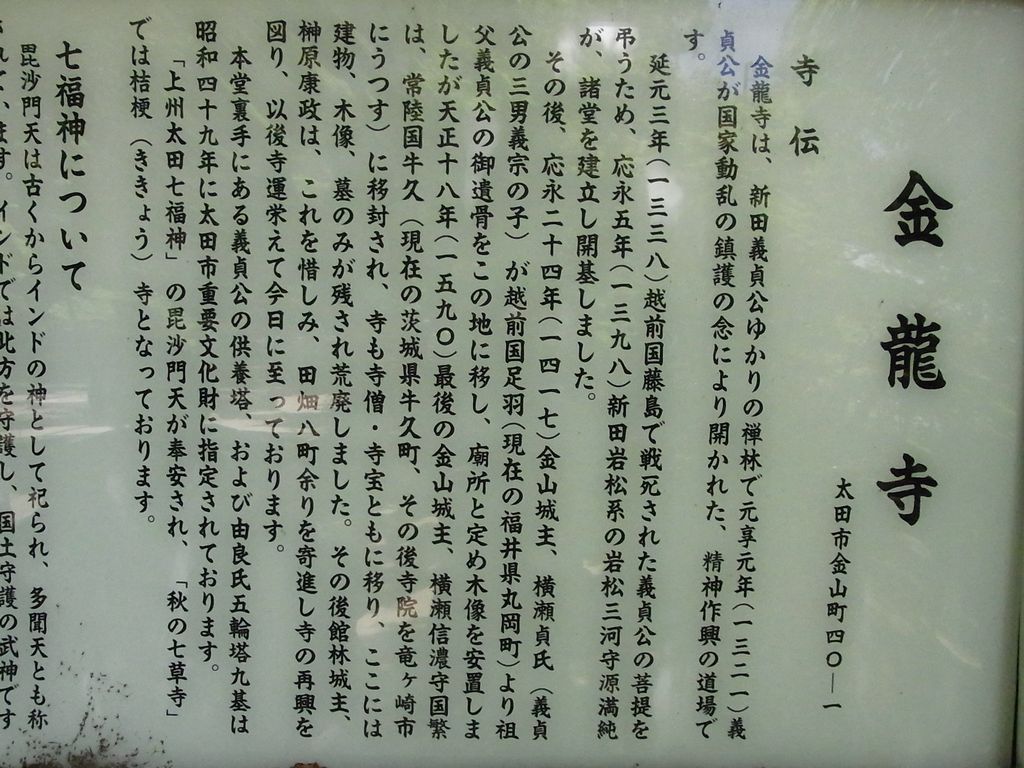 金龍寺
太田市金山町四〇―一
寺伝
金龍寺は、新田義貞公ゆかりの禅林で元享元年(一三二一)義
貞公が国家動乱の鎮護の念により開かれた、精神作興の道場で
す。
延元三年(一三三八)越前国藤島で戦死された義貞公の菩提を
弔うため、応永五年(一三九八)新田岩松系の岩松三河守源満純
が、諸堂を建立し開基しました。
その後、応永二十四年(一四一七)金山城主、横瀬貞氏(義貞
公の三男義宗の子)が越前国足羽(現在の福井県丸岡町)より祖
父義貞公の御遺骨をこの地に移し、廟所と定め木像を安置しま
したが天正十八年(一五九〇)最後の金山城主、横瀬信濃守国繁
は、常陸国牛久(現在の茨城県牛久町、その後寺院を竜ヶ崎市
にうつす)に移封され、寺も寺僧・寺宝ともに移り、ここには
建物、木像、墓のみが残され荒廃しました。その後館林城主、
榊原康政は、これを惜しみ、田畑八町余りを寄進し寺の再興を
図り、以後寺運栄えて今日に至っております。
本堂裏手にある義貞公の供養塔、および由良氏五輪塔九基は
昭和四十九年に太田市重要文化財に指定されております。
「上州太田七福神」の毘沙門天が奉安され、「秋の七草寺」
では桔梗(ききょう)寺となっております。
七福神について
毘沙門天は古くからインドの神として祀られ、多聞天とも称
されています。インドでは北方を守護し、国土守護の武神です